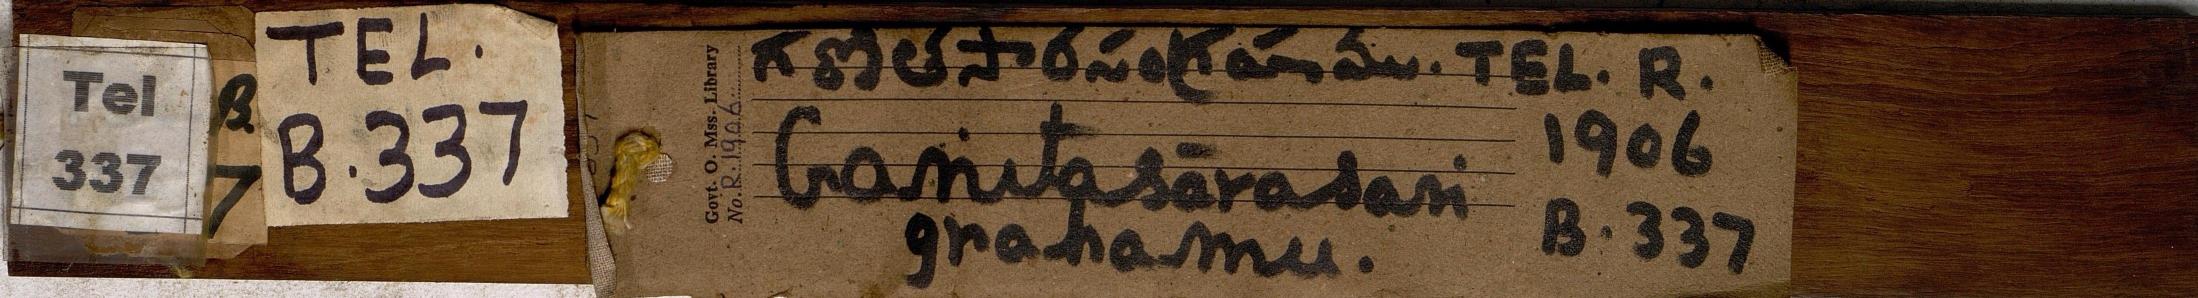 Tel
337
B.
7
TEL.
B.337
Govt. O. Mss. Library
No. R. 1906
గణితసారసంగ్రహము. TEL. R.
1906
Ganitasārasan
grahamu.
B.337